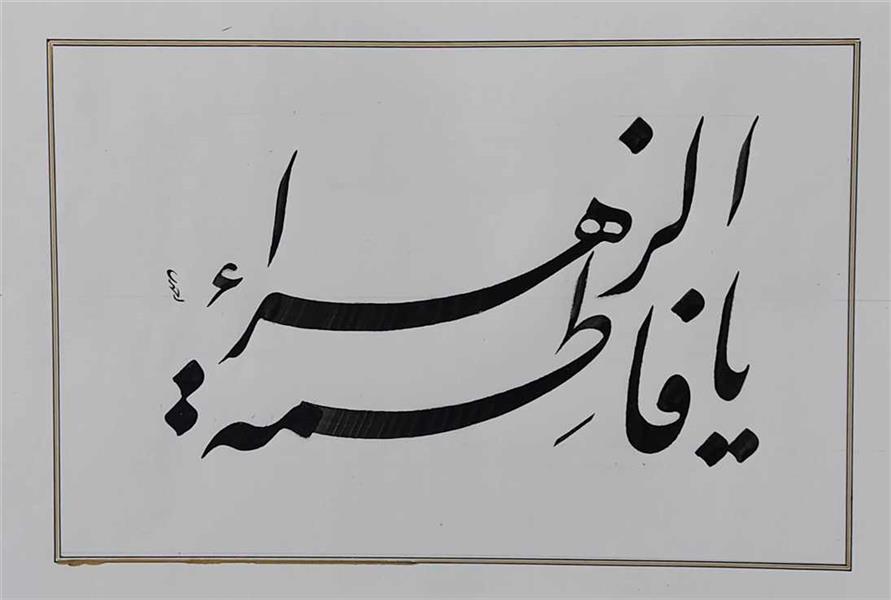 یا فاطِمة
الزهراء